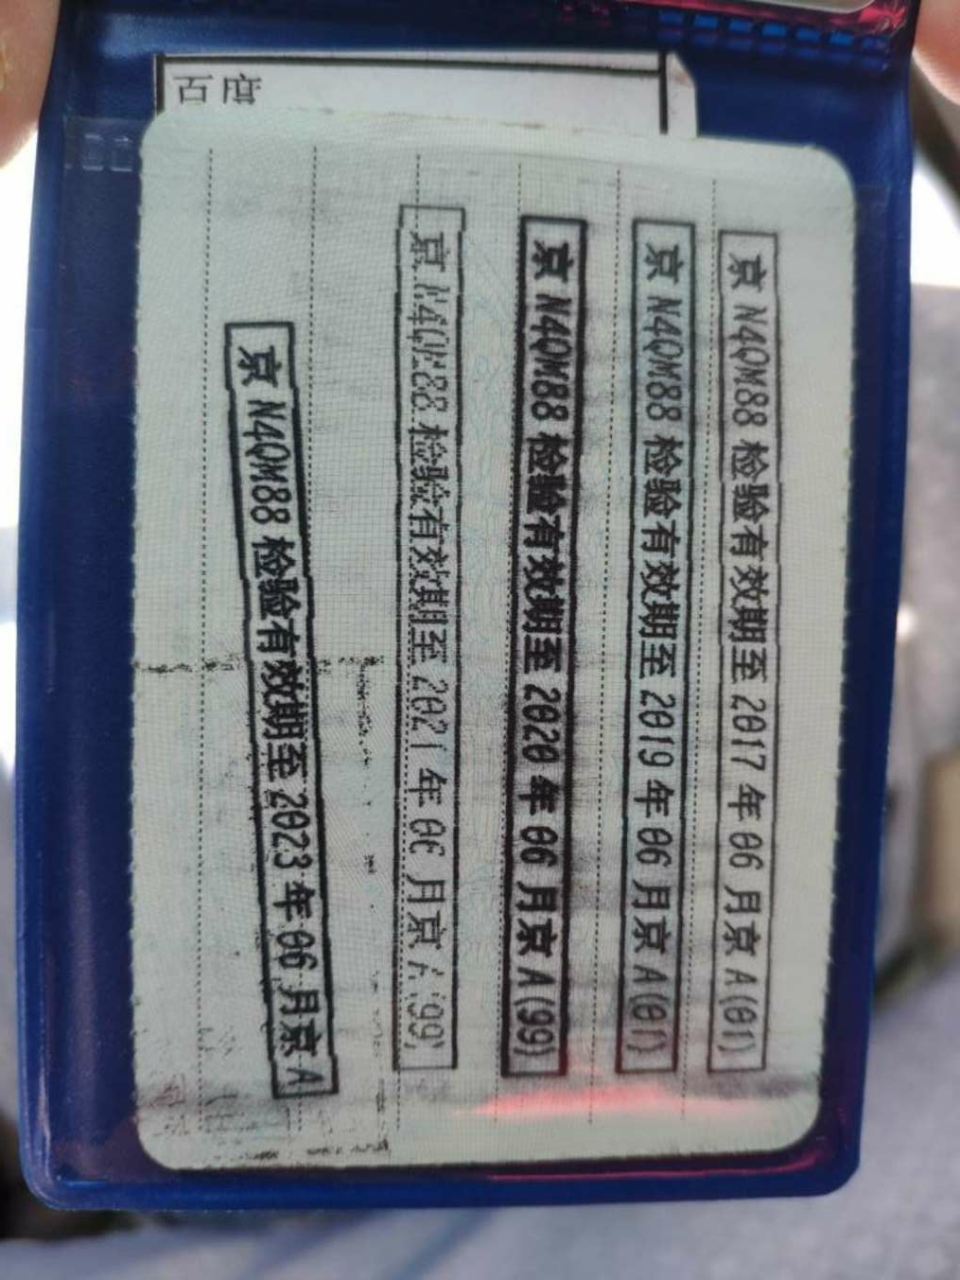 百度
京 N4QM88 检验有效期至 2017 年 06 月京 A(01)
京 N4QM88 检验有效期至 2019 年 06 月京 A(01)
京 N4QM88 检验有效期至 2020 年 06 月京 A(99)
京 N4QM88 检验有效期至 2021 年 06 月京 A(99)
京 N4QM88 检验有效期至 2023 年 06 月京 A